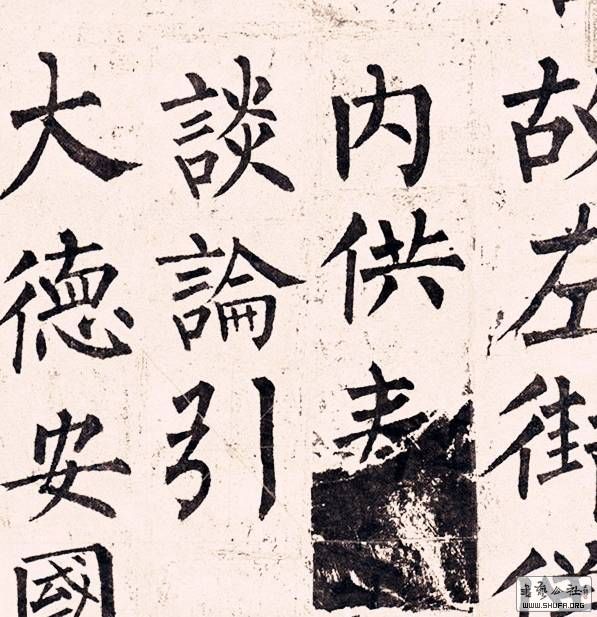 故左街僧
内供奉
談論引
大德安國
WWW.SHUFA.ORG